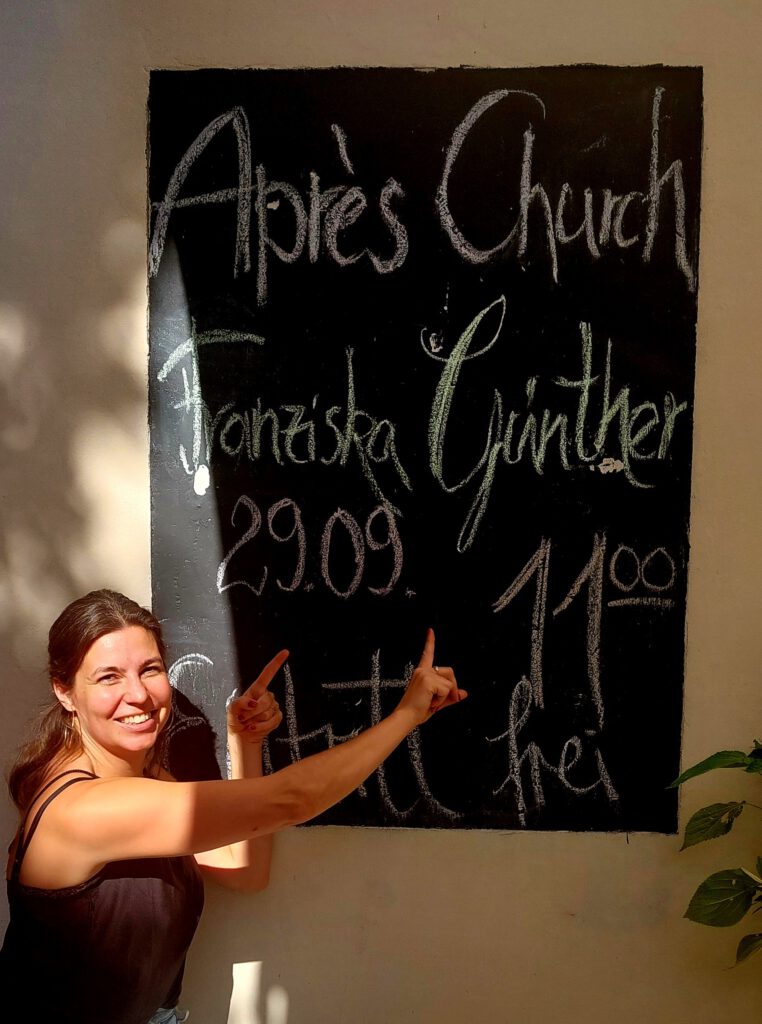 Après Church
Franziska Günther
29.09. 11⁰⁰
Eintritt frei